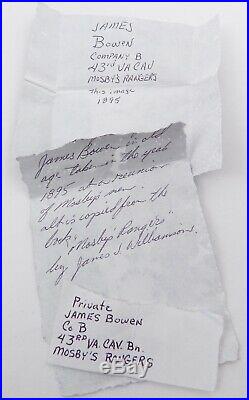 JAMES
Bowen
COMPANY B
43rd VA CAV
MOSBY'S RANGERS
This image
1895
James Bowen in old
age taken in the year
1895 at a reunion
of Mosby's men.
also copied from the
book, "Mosby's Rangers"
by James J. Williamson.
Private
JAMES BOWEN
Co B
43RD VA. CAV. Bn.
MOSBY'S RANGERS